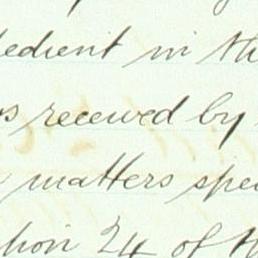 edient in th
s received by
matters spe
tion 24 of th